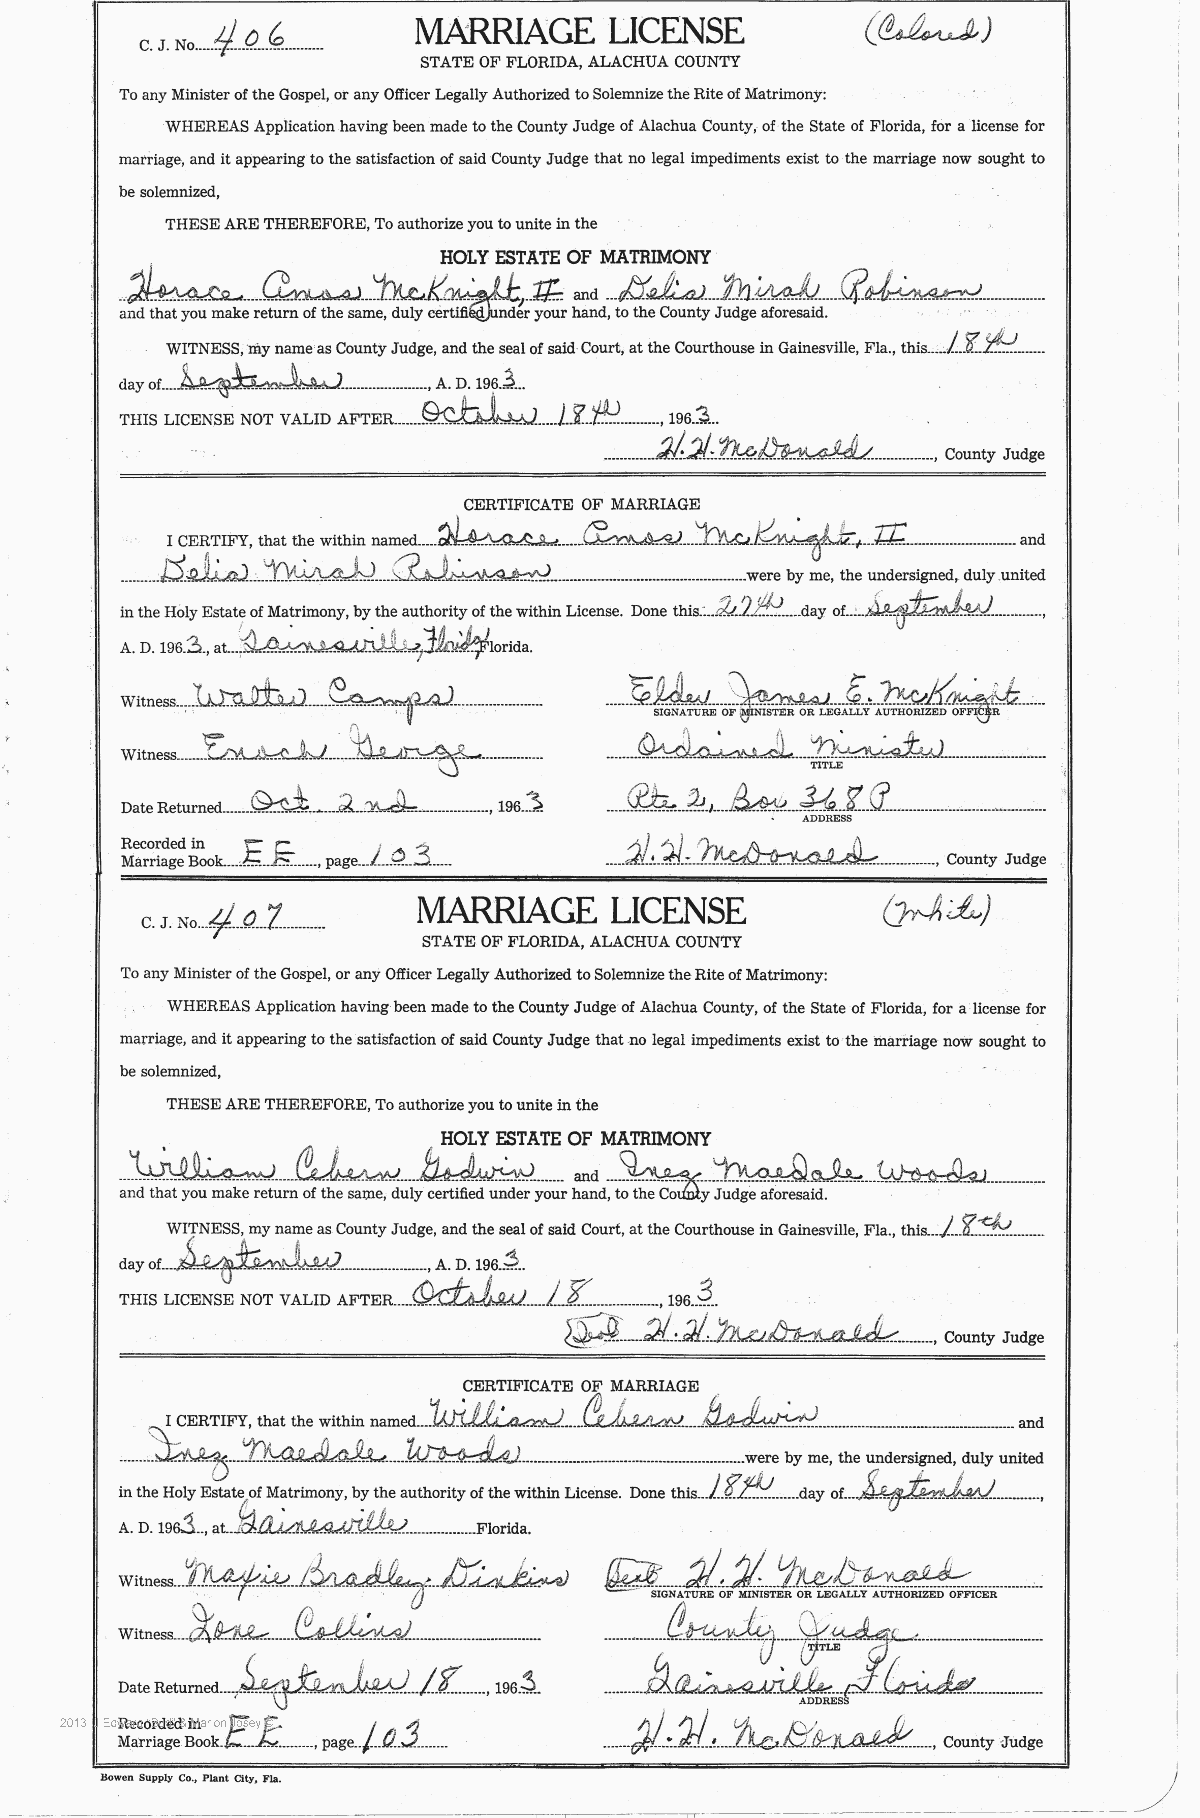 C. J. No. 406 MARRIAGE LICENSE (Colored)
STATE OF FLORIDA, ALACHUA COUNTY
To any Minister of the Gospel, or any Officer Legally Authorized to Solemnize the Rite of Matrimony:
WHEREAS Application having been made to the County Judge of Alachua County, of the State of Florida, for a license for
marriage, and it appearing to the satisfaction of said County Judge that no legal impediments exist to the marriage now sought to
be solemnized,
THESE ARE THEREFORE, To authorize you to unite in the
HOLY ESTATE OF MATRIMONY
Horace Amos McKnight, II and Delia Mirah Robinson
and that you make return of the same, duly certified under your hand, to the County Judge aforesaid.
WITNESS, my name as County Judge, and the seal of said Court, at the Courthouse in Gainesville, Fla., this 18th
day of September, A. D. 1963.
THIS LICENSE NOT VALID AFTER October 18th, 1963.
H. H. McDonald, County Judge
CERTIFICATE OF MARRIAGE
I CERTIFY, that the within named Horace Amos McKnight, II and
Delia Mirah Robinson were by me, the undersigned, duly united
in the Holy Estate of Matrimony, by the authority of the within License. Done this 27th day of September,
A. D. 1963, at Gainesville, Florida Florida.
Witness Walter Camps Elder James E. McKnight
SIGNATURE OF MINISTER OR LEGALLY AUTHORIZED OFFICER
Witness Enoch George Ordained Minister
TITLE
Date Returned Oct. 2nd, 1963 Rte 2, Box 368 P
ADDRESS
Recorded in
Marriage Book EE, page 103 H. H. McDonald, County Judge
C. J. No. 407 MARRIAGE LICENSE (White)
STATE OF FLORIDA, ALACHUA COUNTY
To any Minister of the Gospel, or any Officer Legally Authorized to Solemnize the Rite of Matrimony:
WHEREAS Application having been made to the County Judge of Alachua County, of the State of Florida, for a license for
marriage, and it appearing to the satisfaction of said County Judge that no legal impediments exist to the marriage now sought to
be solemnized,
THESE ARE THEREFORE, To authorize you to unite in the
HOLY ESTATE OF MATRIMONY
William Cebern Godwin and Inez Maedale Woods
and that you make return of the same, duly certified under your hand, to the County Judge aforesaid.
WITNESS, my name as County Judge, and the seal of said Court, at the Courthouse in Gainesville, Fla., this 18th
day of September, A. D. 1963.
THIS LICENSE NOT VALID AFTER October 18, 1963.
Seal H. H. McDonald, County Judge
CERTIFICATE OF MARRIAGE
I CERTIFY, that the within named William Cebern Godwin and
Inez Maedale Woods were by me, the undersigned, duly united
in the Holy Estate of Matrimony, by the authority of the within License. Done this 18th day of September,
A. D. 1963, at Gainesville Florida.
Witness Maxie Bradley Dinkins Seal H. H. McDonald
SIGNATURE OF MINISTER OR LEGALLY AUTHORIZED OFFICER
Witness Zone Collins County Judge
TITLE
Date Returned September 18, 1963 Gainesville, Florida
ADDRESS
2013
Recorded in
Marriage Book EE, page 103 H. H. McDonald, County Judge
Bowen Supply Co., Plant City, Fla.